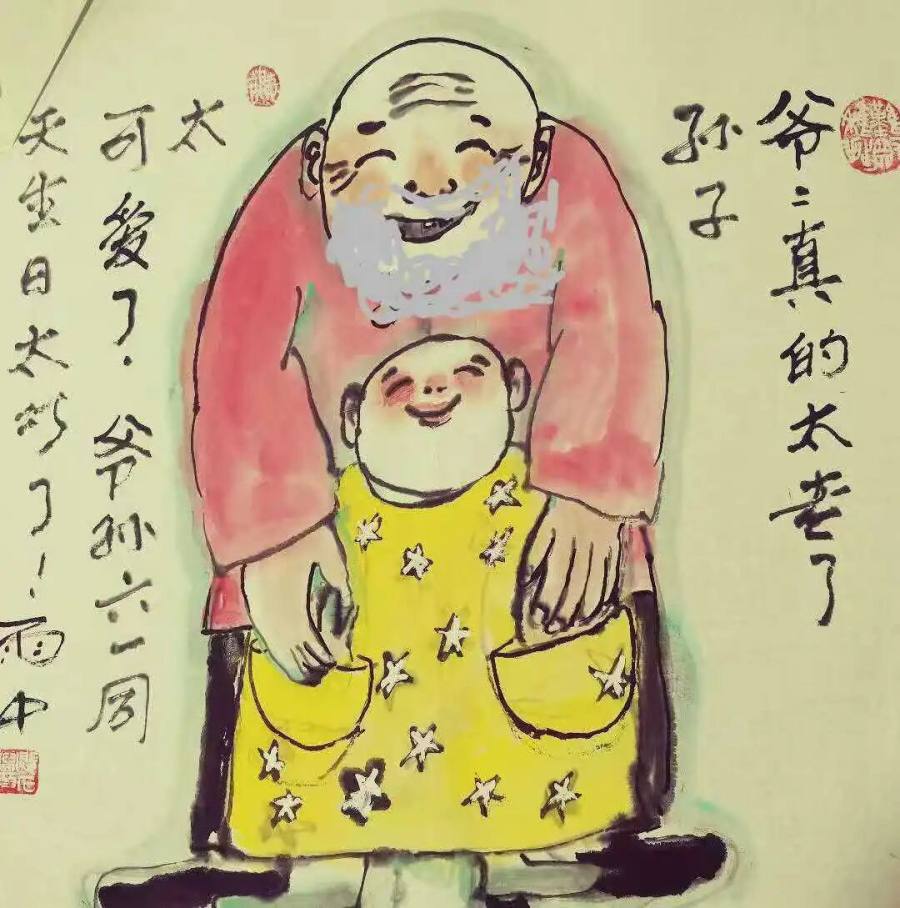 爷二真的太老了
孙子
太
可爱了．爷孙六一同
天生日太巧了！雨中